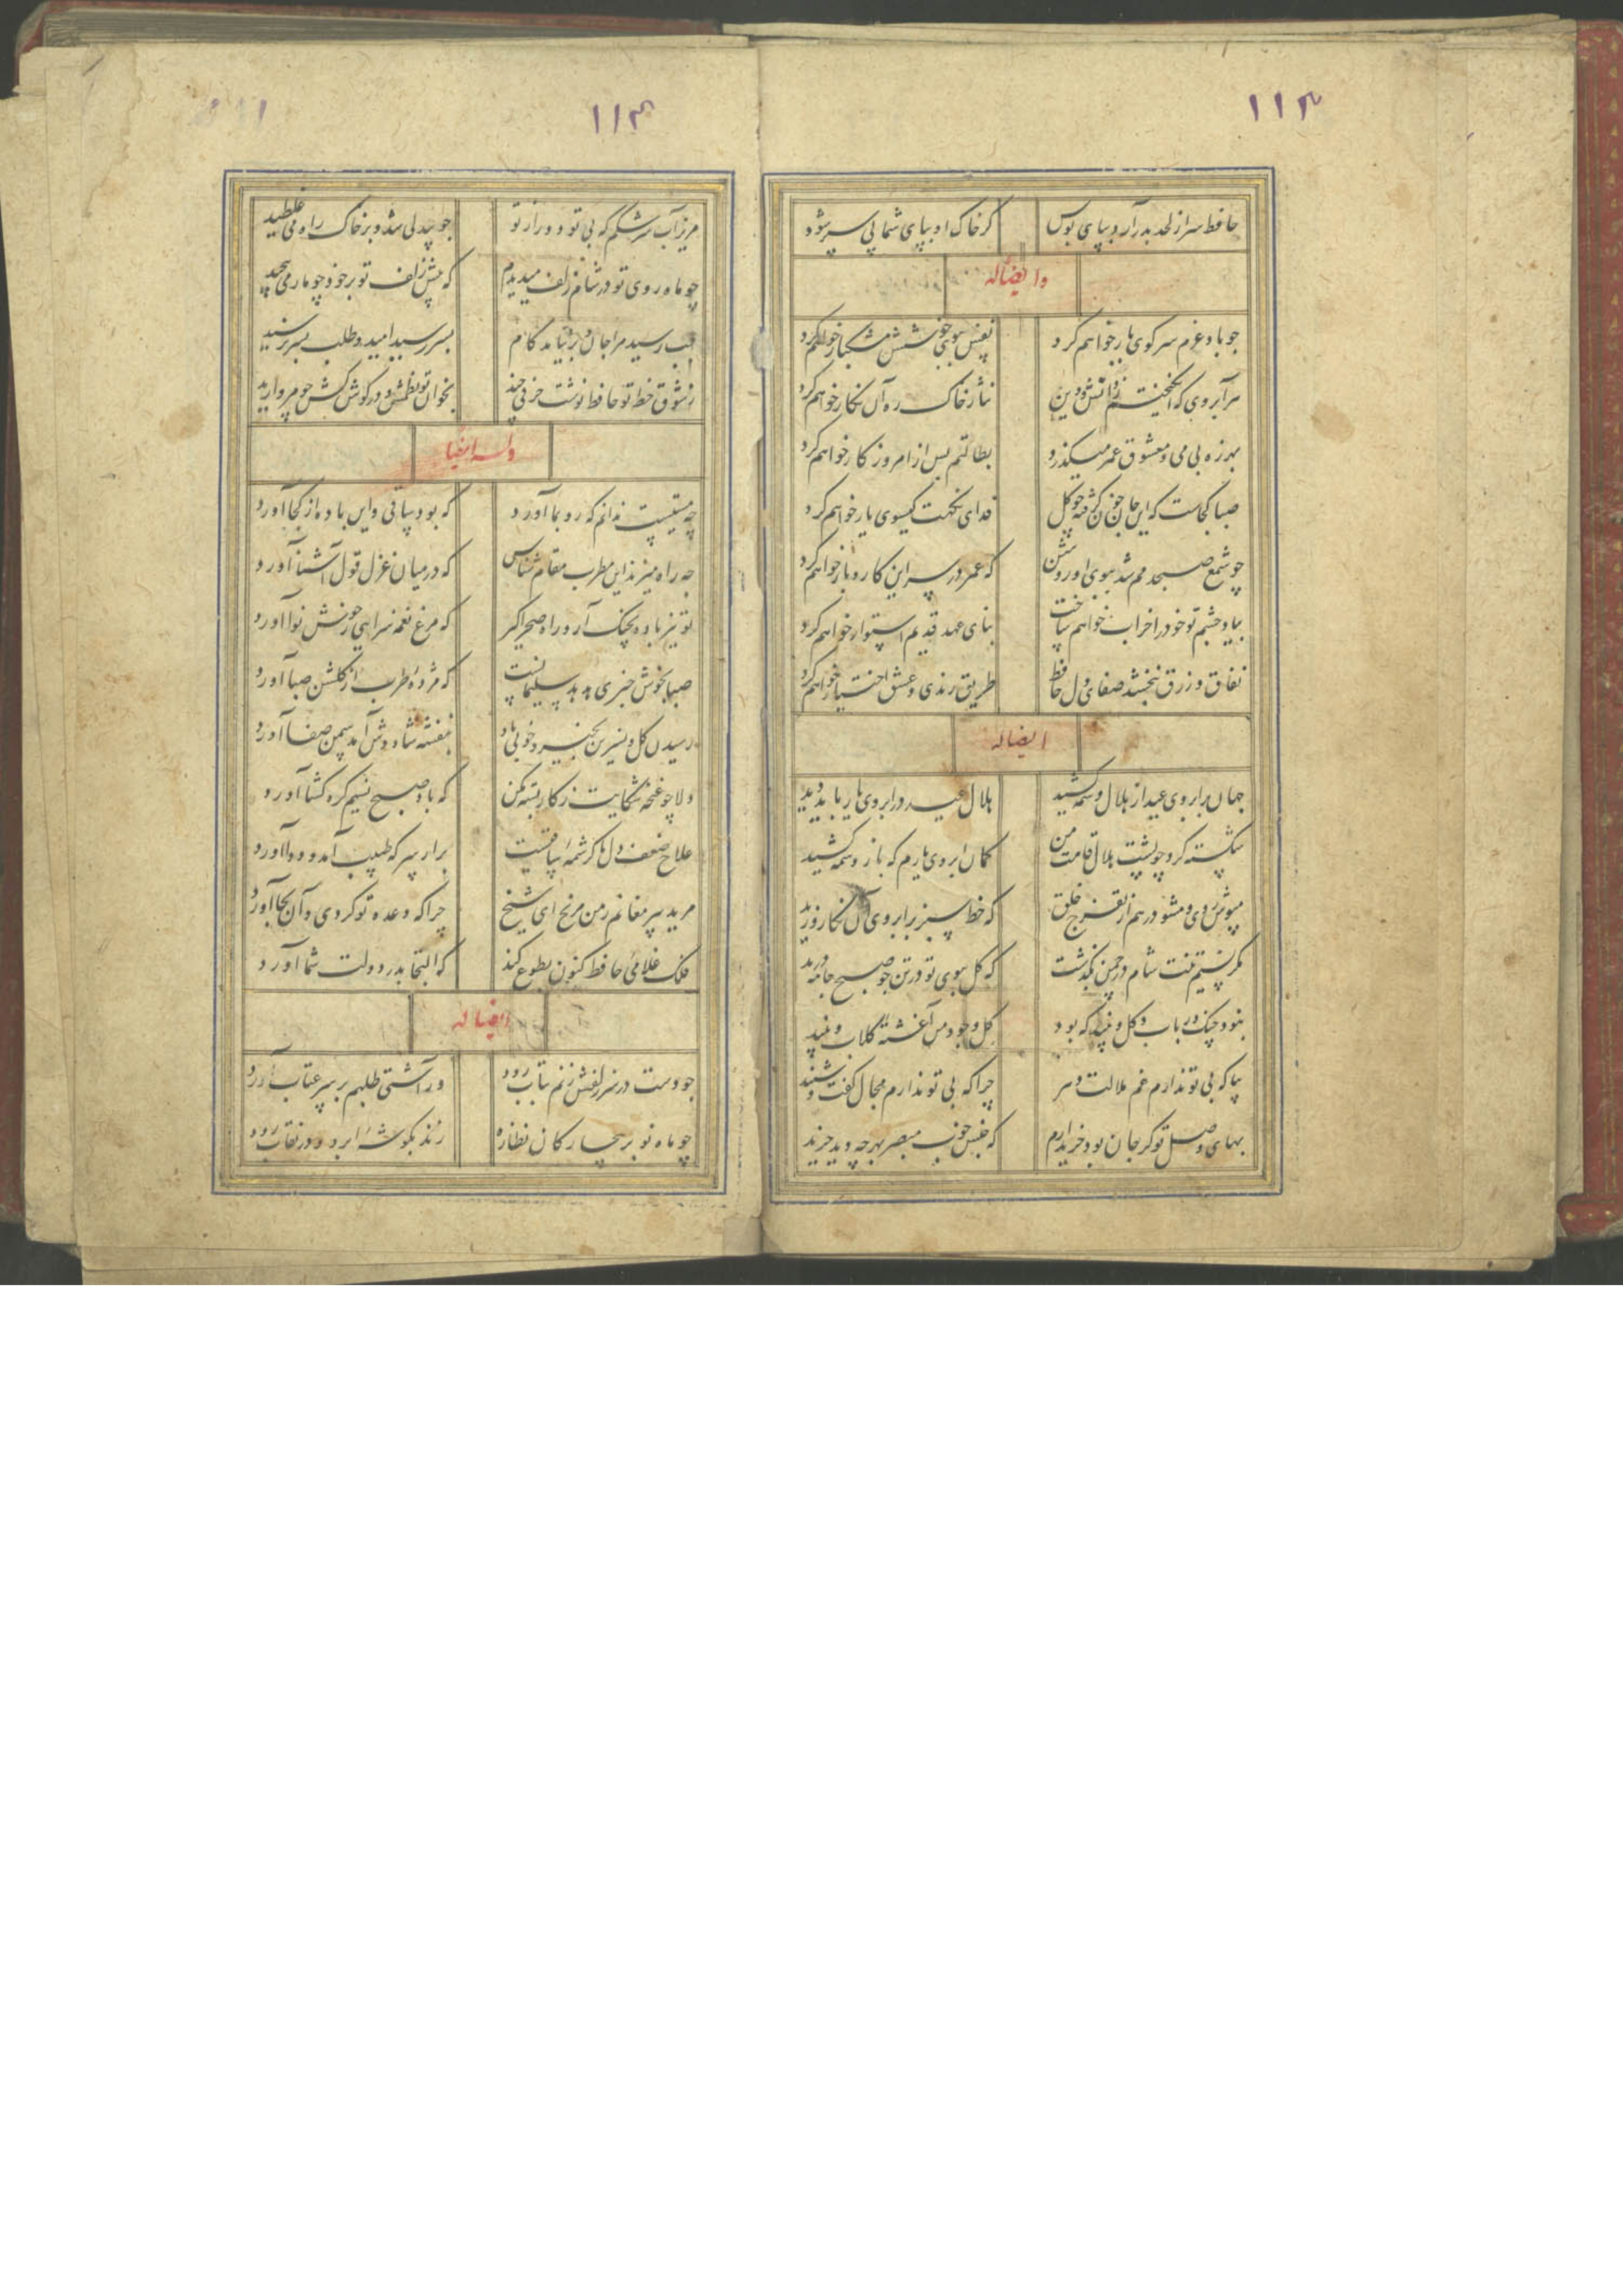 ۱۱۳
حافظ سر از لحد بدر آرد بپای بوس کر خاک او بپای شما پی سپر شود
وایضاله
چو باد عزم سر کوی یار خواهم کرد نفس ببوی خوشش مشکبار خواهم کرد
هر آبروی که اندوختم ز دانش و دین نثار خاک ره آن نکار خواهم کرد
بهرزه بی می و معشوق عمر میکذرد بطالتم بس از امروز کار خواهم کرد
صبا کجاست که این جان خون کرفته چو کل فدای نکهت کیسوی یار خواهم کرد
چو شمع صبحدمم شد ببوی او روشن که عمر در سر این کار و بار خواهم کرد
بیاد چشم تو خود را خراب خواهم ساخت بنای عهد قدیم استوار خواهم کرد
نفاق و زرق نبخشد صفای دل حافظ طریق رندی و عشق اختیار خواهم کرد
ایضاله
جهان بر ابروی عید از هلال وسمه کشید هلال عید در ابروی یار باید دید
شکسته کرد چو پشت هلال قامت من کمان ابروی یارم که باز وسمه کشید
مپوش روی و مشو در هم از تفرج خلق که خط سبز بر ابروی آن نکار وزید
مکر نسیم تنت شام در چمن بکذشت که کل ببوی تو در تن چو صبح جامه درید
نبود چنک و رباب و کل و نبید که بود کل وجود من آغشته کلاب و نبید
بیا که بی تو ندارم غم ملالت و سر چرا که بی تو ندارم مجال کفت و شنید
بهای وصل تو کر جان بود خریدارم که جنس خوب مبصر بهرچه دید خرید
۱۱۴
مریز آب سرشکم که بی تو دور از تو چو بیدلی شد و بر خاک راه می غلطید
چو ماه روی تو در شام زلف میدیدم که پیش زلف تو بر خود چو مار می پیچید
بلب رسید مرا جان و برنیامد کام بسر رسید امید و طلب بسر نرسید
ز شوق خط تو حافظ نوشت حرفی چند بخوان تو نظمش و در کوش کش چو مروارید
وله ایضا
چه مستیست ندانم که رو بما آورد که بود ساقی و این باده از کجا آورد
چه راه میزند این مطرب مقام شناس که در میان غزل قول آشنا آورد
تو نیز باده بچنک آر و راه صحرا کیر که مرغ نغمه سرای خوش نوا آورد
صبا بخوش خبری هدهد سلیمانست که مژده طرب از کلشن صبا آورد
رسیدن کل و نسرین بخیر و خوبی باد بنفشه شاد وش آمد سمن صفا آورد
دلا چو غنچه شکایت ز کار بسته مکن که باد صبح نسیم کره کشا آورد
علاج ضعف دل ما کرشمه ساقیست برآر سر که طبیب آمد و دوا آورد
مرید پیر مغانم ز من مرنج ای شیخ چرا که وعده تو کردی و آن بجا آورد
فلک غلامی حافظ کنون بطوع کند که التجا بدر دولت شما آورد
ایضاله
چو دست در سر زلفش زنم بتاب رود ور آشتی طلبم بر سر عتاب رود
چو ماه نو بر بیچارکان نظاره زند بکوشه ابرو و در نقاب رود